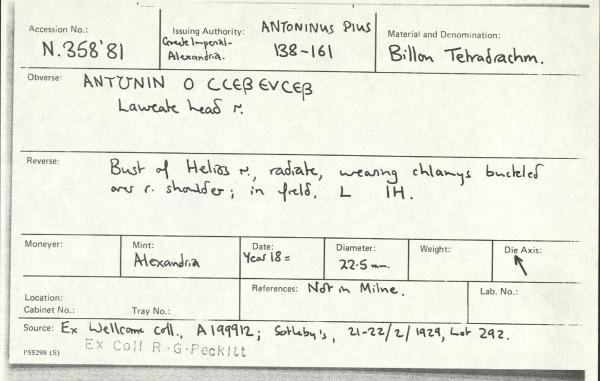 Accession No.:
N.358'81
Issuing Authority: ANTONINUS PIUS
Greek Imperial-
Alexandria. 138-161
Material and Denomination:
Billon Tetradrachm.
Obverse: ANTUNIN O CCEβ EVCEβ
Laureate head r.
Reverse: Bust of Helios r., radiate, wearing chlamys buckled
over r. shoulder; in field, L IH.
Moneyer:
Mint:
Alexandria
Date:
Year 18 =
Diameter:
22.5 mm.
Weight:
Die Axis:
↖
Location:
Cabinet No.: Tray No.:
References: Not in Milne.
Lab. No.:
Source: Ex Wellcome coll., A199912; Sotheby's, 21-22/2/1929, Lot 292.
Ex Coll R.G.Peckitt
P55298 (S)